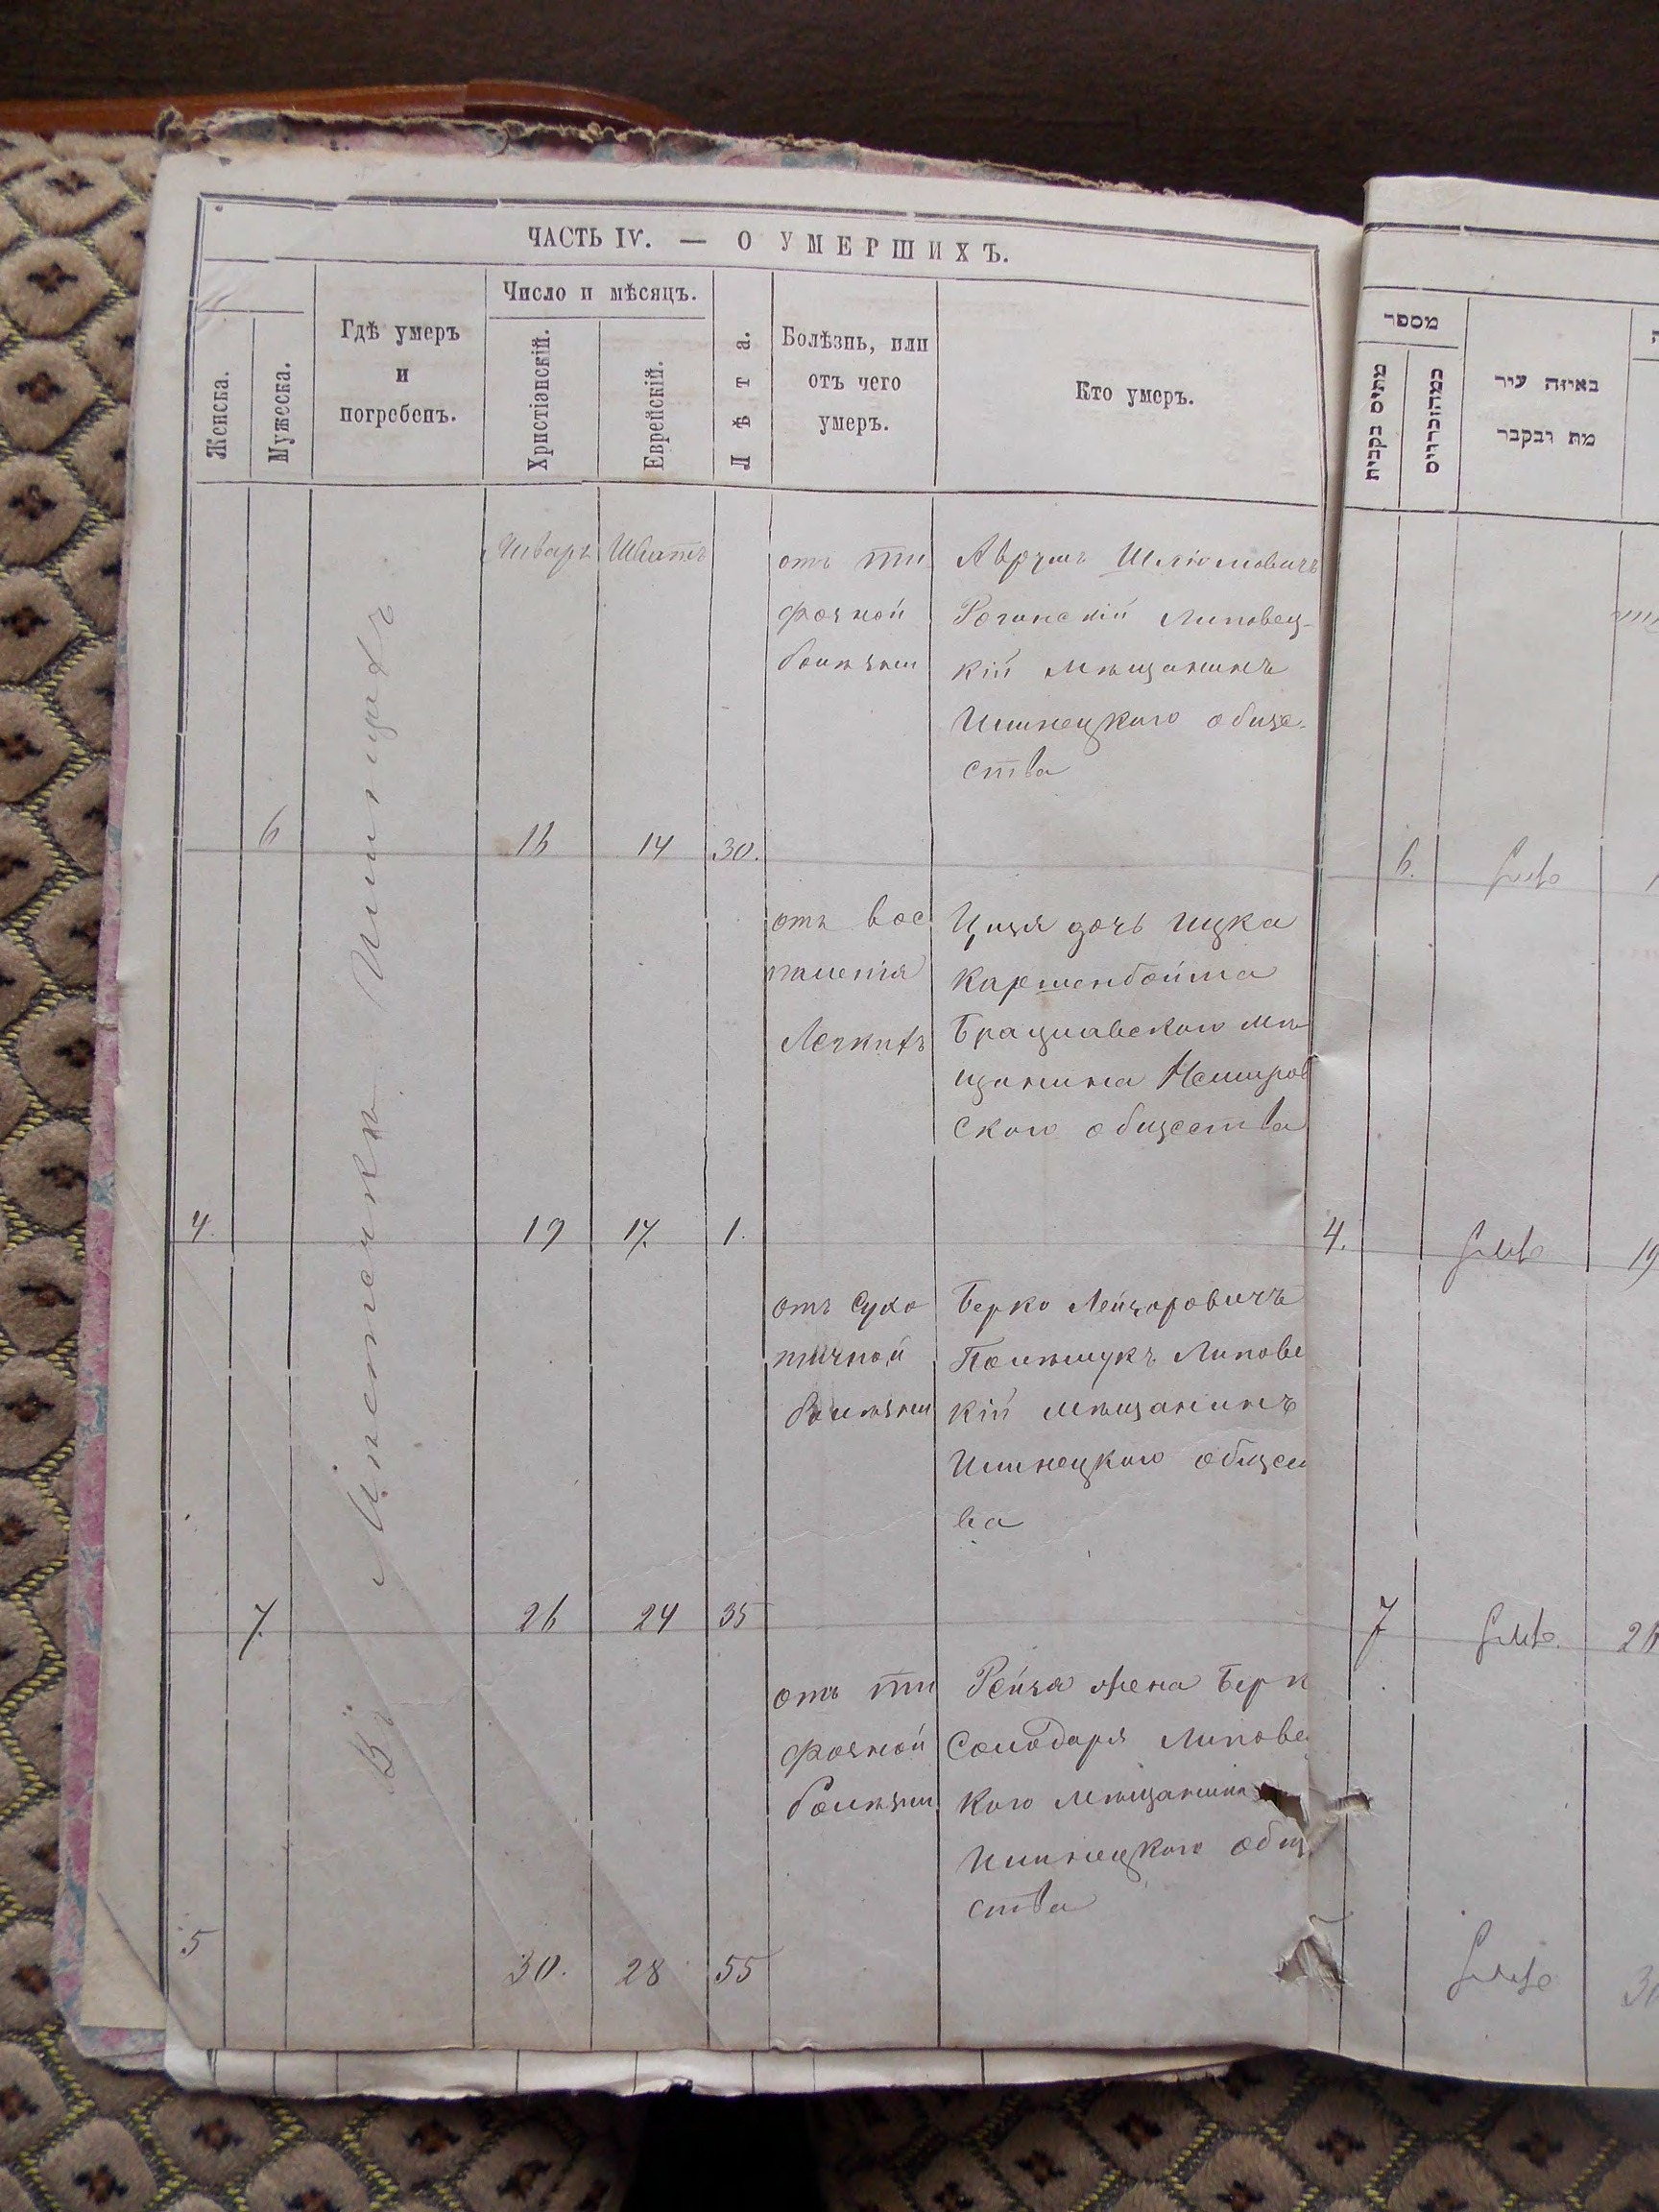 ЧАСТЬ IV. — О УМЕРШИХЪ.
Женска.
Мужеска.
Гдѣ умеръ
и
погребенъ.
Число и мѣсяцъ.
Христіанскій.
Еврейскій.
Лѣта.
Болѣзнь, или
отъ чего
умеръ.
Кто умеръ.
Въ Мѣстечкѣ Илинцахъ
Январь Шватъ
отъ ти
фозной
болѣзни
Аврумъ Шлiомовичъ
Рогинскій Липовец-
кій мѣщанинъ
Илинецкого обще-
ства
6 16 14 30.
отъ вос
паленія
Легкихъ
Ципя дочь Ицка
Каршенбойма
Брацлавского мѣ
щанина Немиров
ского общества
4. 19 17. 1.
отъ сухо
тичной
болѣзни
Берко Лейзоровичъ
Полѣщукъ Липове
кій мѣщанинъ
Илинецкого общест
ва
7. 26 24 35
отъ ти
фозной
болѣзни
Рейзя жена Берк
Солодаря Липовец
кого мѣщанина
Илинецкого общ
ства
5 30. 28 55
מספר
מתים בקבית
באיזה עיר
מת ונקבר
6.
4. 19
7 26